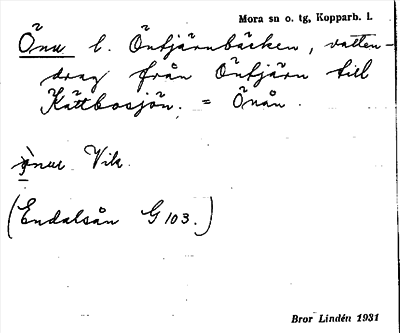 Mora sn o. tg, Kopparb. l.
Önu l. Öntjärnbäcken, vatten-
drag från Öntjärn till
Kättbosjön. = Önån.
Vik
(Endalsån G 103.)
Bror Lindén 1931